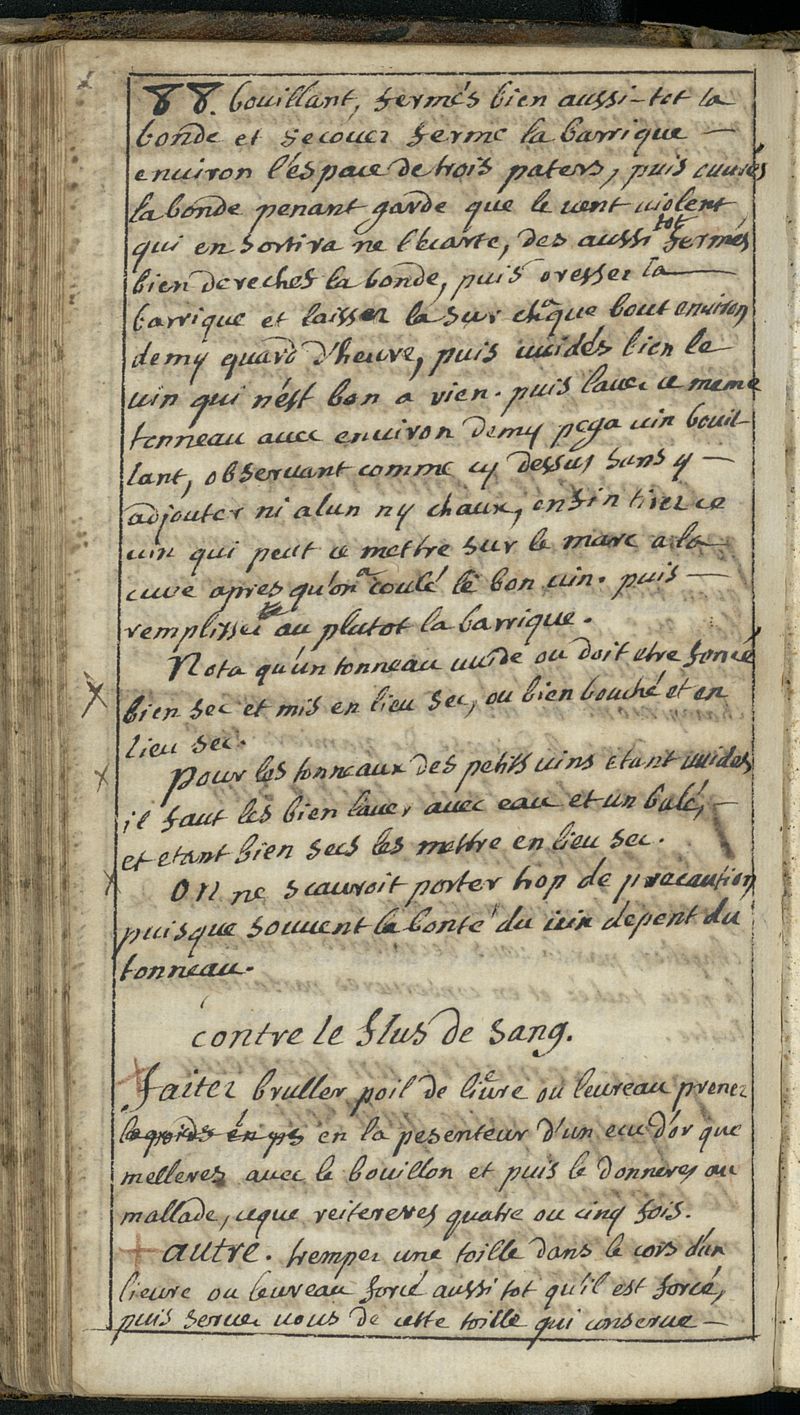 88. bouillant, fermés bien aussi-tot la
bonde et secouez ferme la barrique —
enuiron l'éspace de trois paters, puis ouurés
la bonde penant garde que le uent uiolent
qui en sortira ne l'ecarte, des aussi tot fermés
bien derechef la bonde, puis dresser la —
barrique et laisser la sur chaque bout enuiron
demy quard d'heure, puis uuidés bien le
uin qui n'ést bon a rien. puis lauer ce meme
tonneau auec enuiron demy pega uin bouil-
lant, obseruant comme cy dessus sans y —
adjouter ni alun ny chaux, enfin tirez ce
uin qui peut ce mettre sur le marc a la
cuve apres qu'on a coulé le bon uin. puis —
remplissez au plutot la barrique.
Nota qu'un tonneau uuide ou doit etre foncé
bien sec et mis en lieu sec, ou bien bouché et en
lieu sec.
Pour les tonneaux des petits uins étant uuides
il faut les bien lauer auec eau et un balé, —
et etant bien secs les mettre en lieu sec.
On ne scauroit porter trop de precaution
puisque souuent la bonté du uin dépent du
tonneau.
contre le flus de sang.
Faitez bruller poil de lieure ou leureau prenez
le poids én ps en la pesenteur d'un ecu d'or que
melleres auec le bouillon et puis le donneres au
mallade, ceque reitereres quatre ou cinq fois.
autre. tremper une toille dans le cors d'un
lieure ou leureau forcé aussi tot qu'il est forcé,
puis seruez uous de cette toille qui conserue —